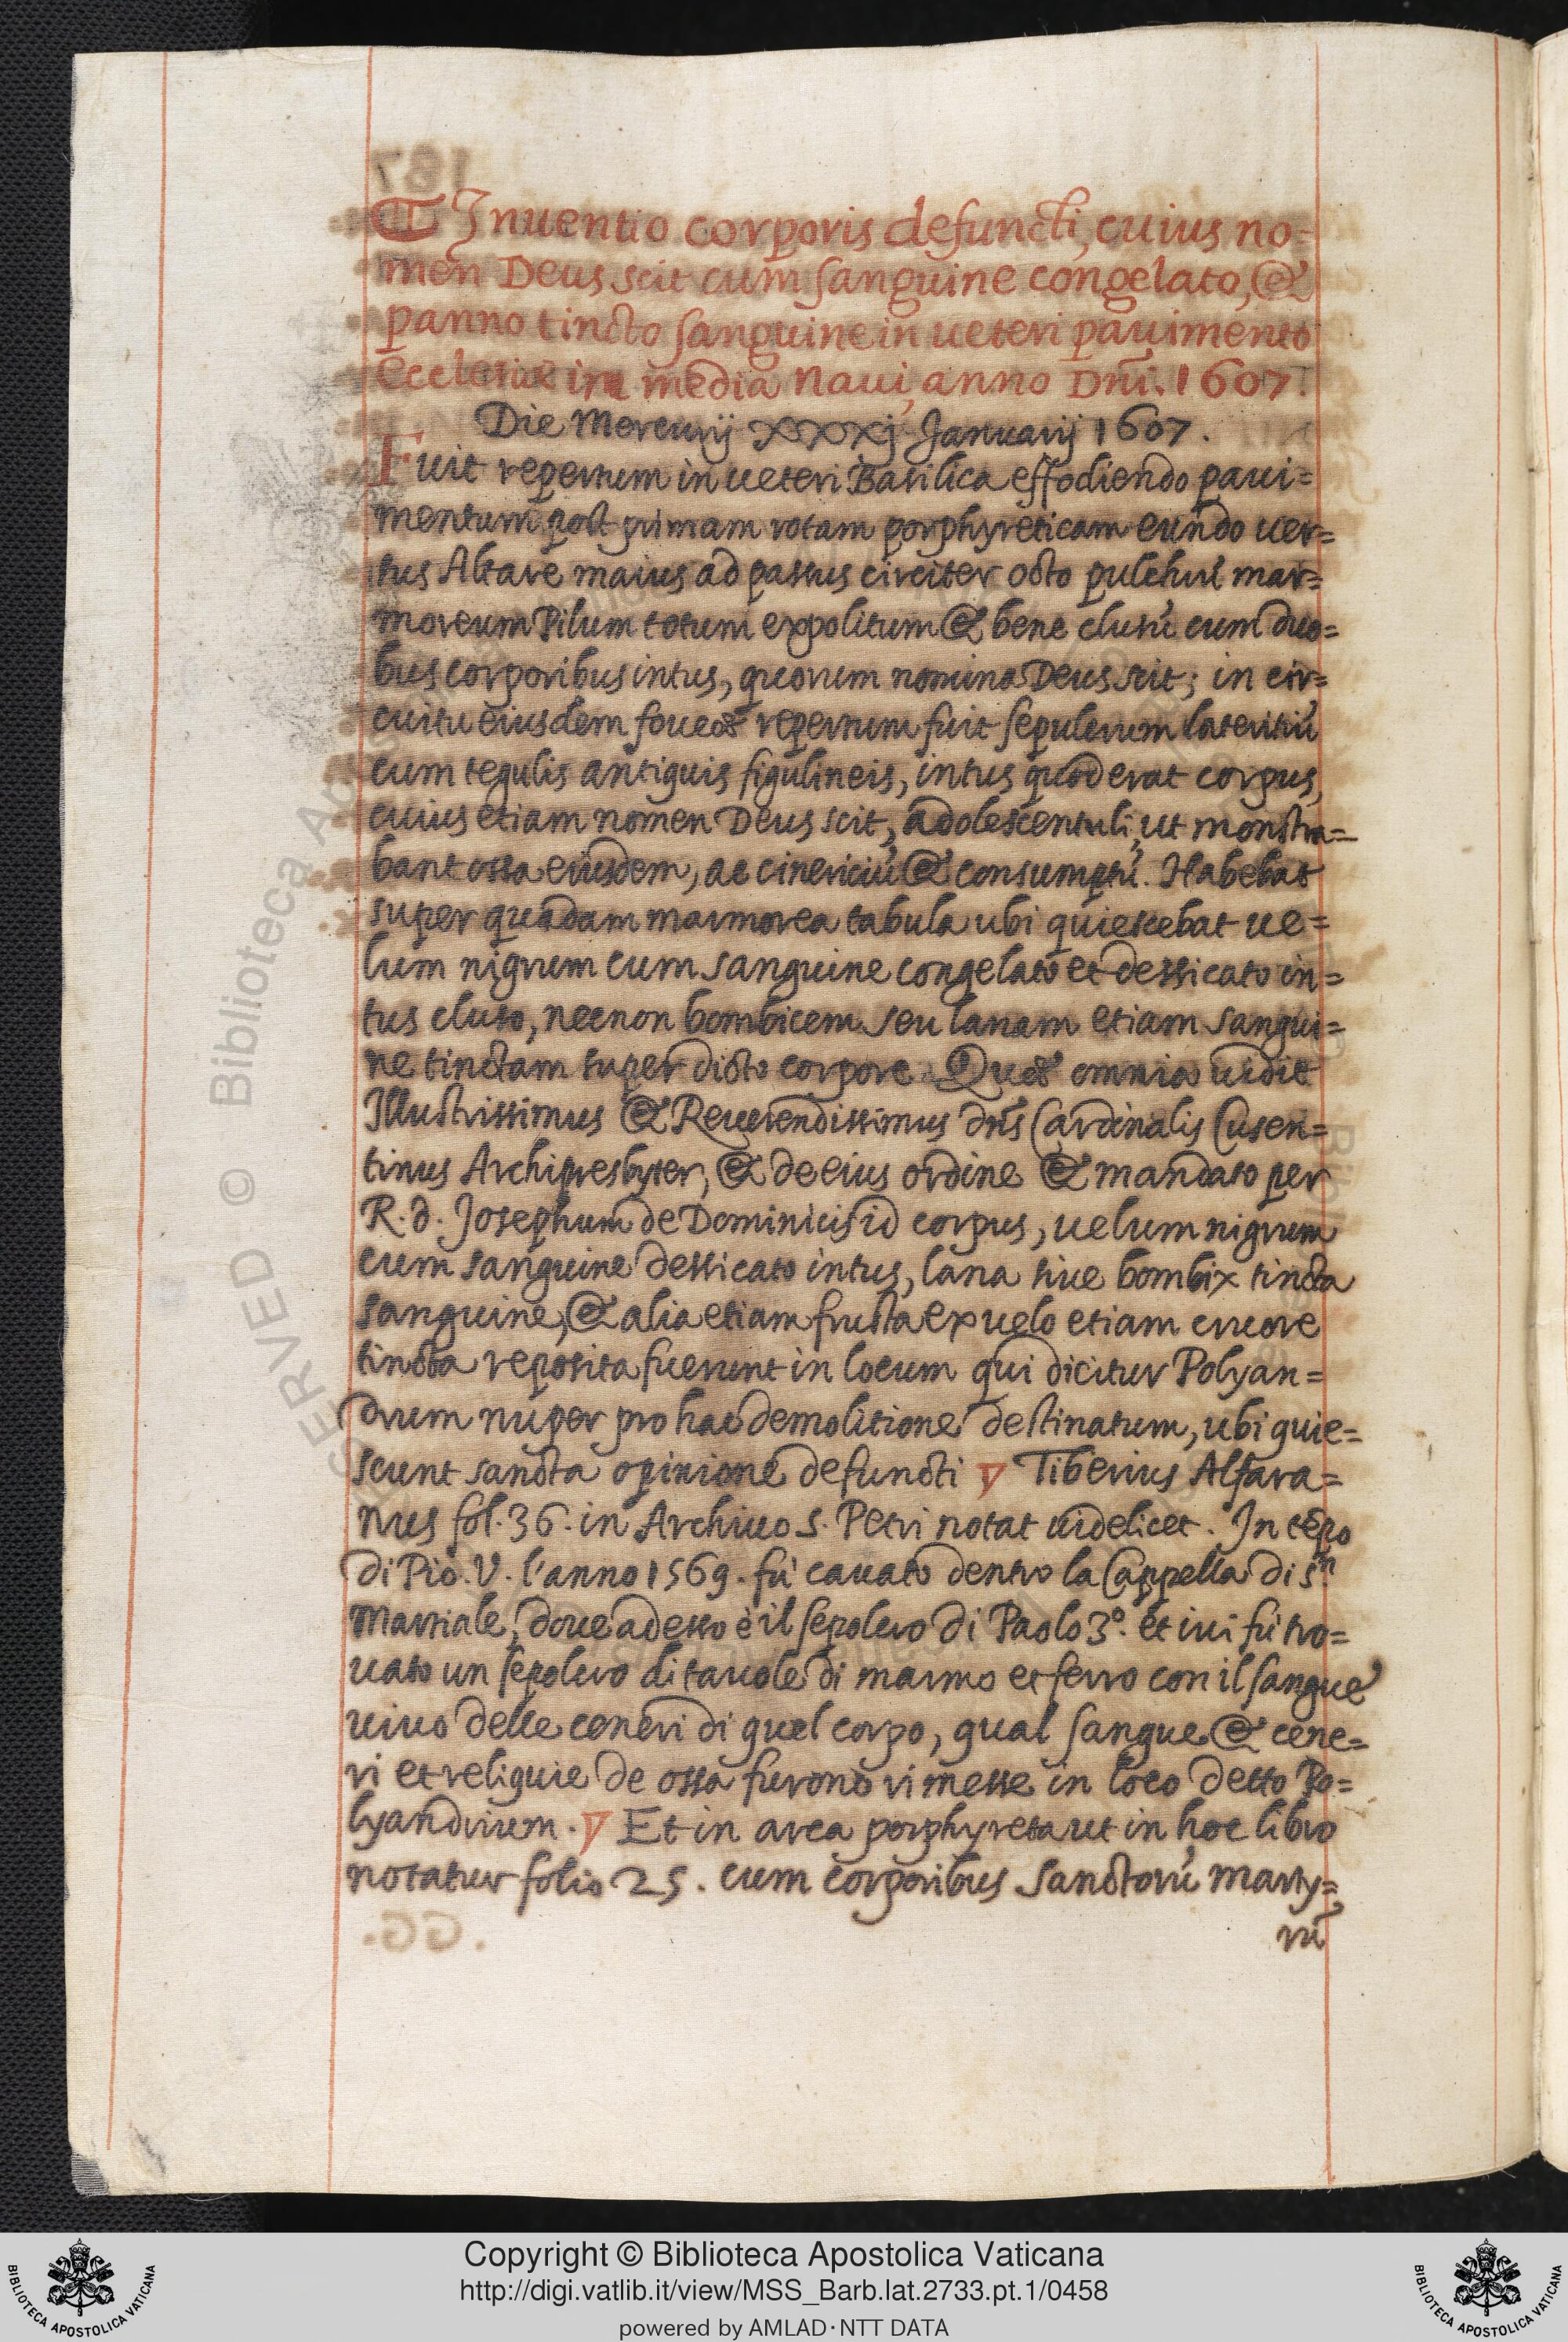 ¶ Inuentio corporis defuncti, cuius no-
men Deus scit cum sanguine congelato, &
panno tincto sanguine in ueteri pauimento
Ecclesiæ in media naui, anno Dnĩ. 1607.
Die Mercurij xxxj Januarij 1607.
Fuit repertum in ueteri Basilica effodiendo paui=
mentum post primam rotam porphyreticam eundo uer=
sus Altare maius ad passus circiter octo pulchrũ mar=
moreum Pilum totum expolitum & bene clusũ cum duo=
bus corporibus intus, quorum nomina Deus scit; in cir=
cuitu eiusdem foueæ repertum fuit sepulcrum lateritiũ
cum tegulis antiquis figulineis, intus quod erat corpus,
cuius etiam nomen Deus scit, adolescentuli, ut monstra=
bant ossa eiusdem, ac cinericiũ & consumptũ. Habebat
super quadam marmorea tabula ubi quiescebat ue=
lum nigrum cum sanguine congelato et dessicato in=
tus cluso, necnon bombicem seu lanam etiam sangui=
ne tinctam super dicto corpore. Quæ omnia uidit
Illustrissimus & Reuerendissimus dñs Cardinalis Cusen=
tinus Archipresbyter, & de eius ordine & mandato per
R. d. Josephum de Dominicis id corpus, uelum nigrum
cum sanguine dessicato intus, lana siue bombix tincta
sanguine, & alia etiam frusta ex uelo etiam cruore
tincta reposita fuerunt in locum qui dicitur Polyan=
drum nuper pro hac demolitione destinatum, ubi quie=
scunt sancta opinione defuncti Tiberius Alfara=
nus fol. 36. in Archiuo S. Petri notat uidelicet. In tẽpo
di Pio. V. l'anno 1569. fù cauato dentro la Cappella di S.n
Martiale, doue adesso è il sepolcro di Paolo 3º. et iui fù tro=
uato un sepolcro di tauole di marmo et ferro con il sangue
uiuo delle ceneri di quel corpo, qual sangue & cene=
ri et reliquie de ossa furono rimesse in loco detto Po=
lyandrium. Et in arca porphyreta ut in hoc libro
notatur folio 25. cum corporibus Sanctorũ marty=
rũ
Copyright © Biblioteca Apostolica Vaticana
http://digi.vatlib.it/view/MSS_Barb.lat.2733.pt.1/0458
powered by AMLAD·NTT DATA
BIBLIOTECA APOSTOLICA VATICANA
BIBLIOTECA APOSTOLICA VATICANA